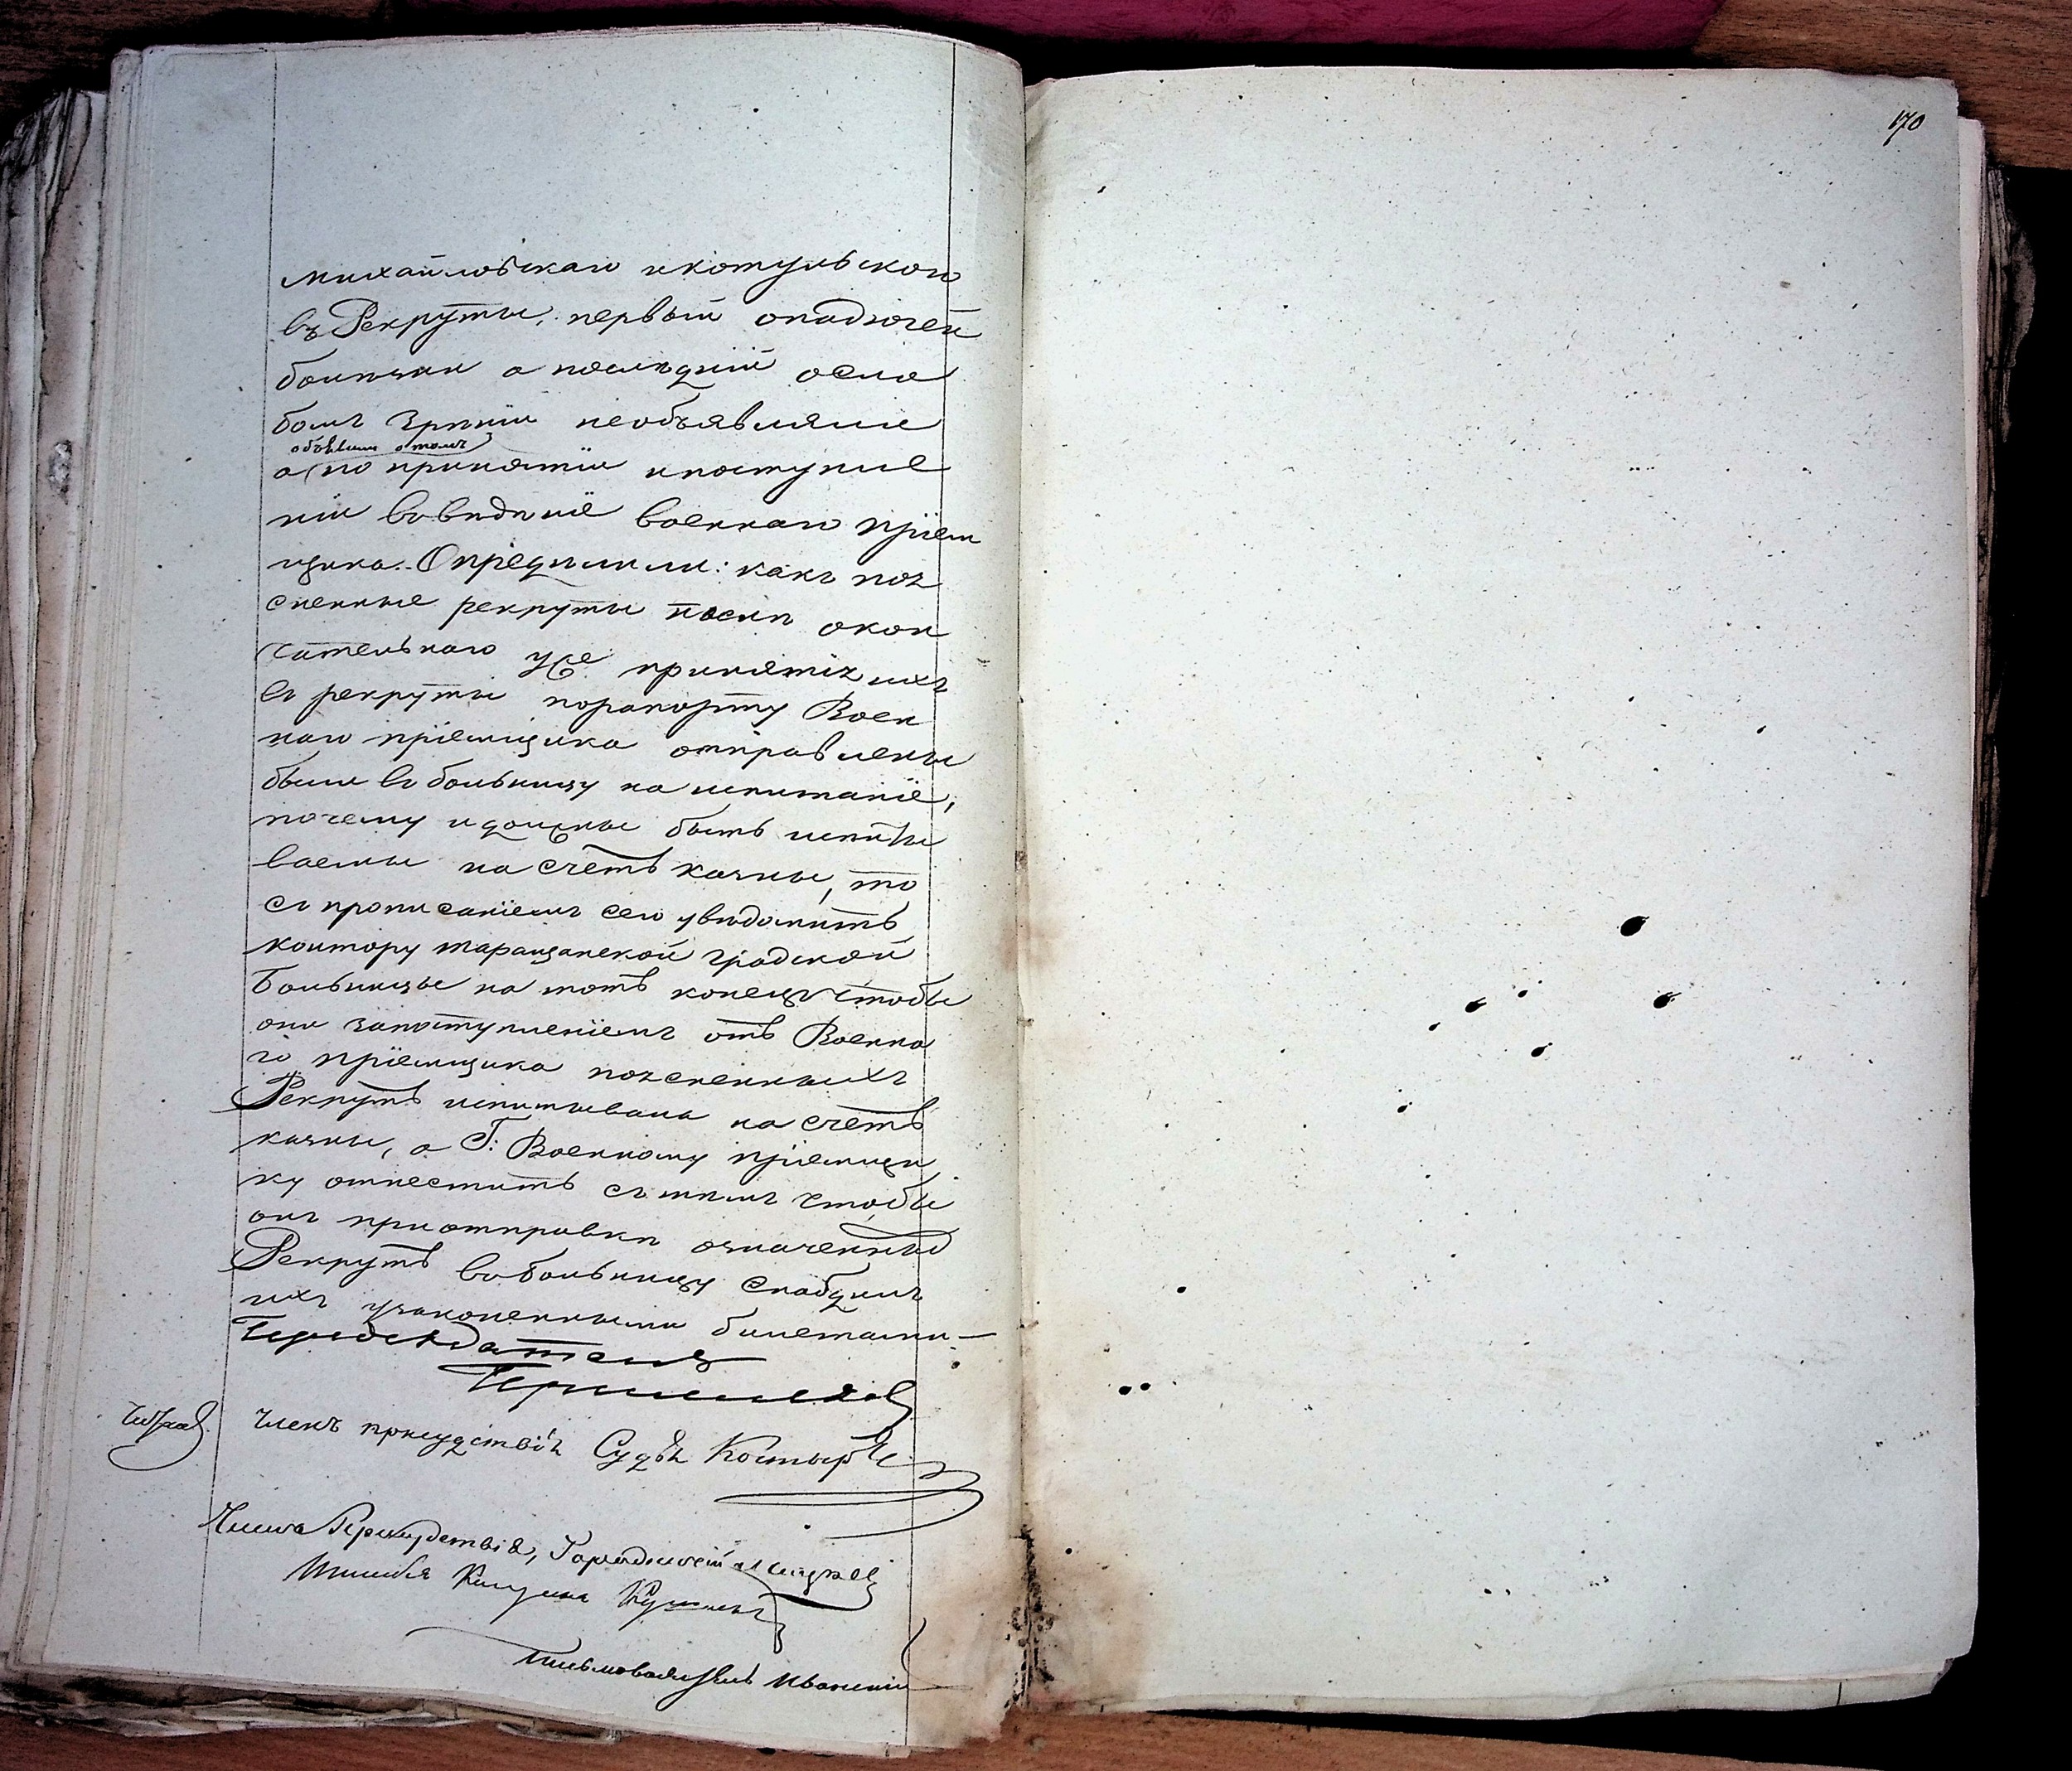 170
Михайловскаго и котульского
въ Рекруты, первый опадючей
болѣзни а послѣдній осла
бомъ Зрѣніи необъявляли
объявили о томъ
а по принятіи и поступле
ніи въ вѣдѣніе военнаго пріем
щика. Опредѣлили: какъ поя
сненные рекруты послѣ окон
чательнаго уже принятія ихъ
въ рекруты по рапорту Воен
наго пріемщика отправлены
были въ больницу на испытаніе,
почему и должны быть испыты
ваемы на счетъ казны, то
съ прописаніемъ сего увѣдомить
контору таращанской градской
Больницы на тотъ конецъ чтобы
она запоступленіемъ отъ Военна
го пріемщика поясненныхъ
Рекрутъ испытывала на счетъ
казны, а Г: Военному пріемщи
ку отнестить съ тѣмъ чтобы
онъ при отправкѣ означенныхъ
Рекрутъ въ больницу снабдилъ
ихъ узаконенными билетами
Председатель
Членъ присудствія Судья
Члены Присудствія, Городничій
Письмоводитель